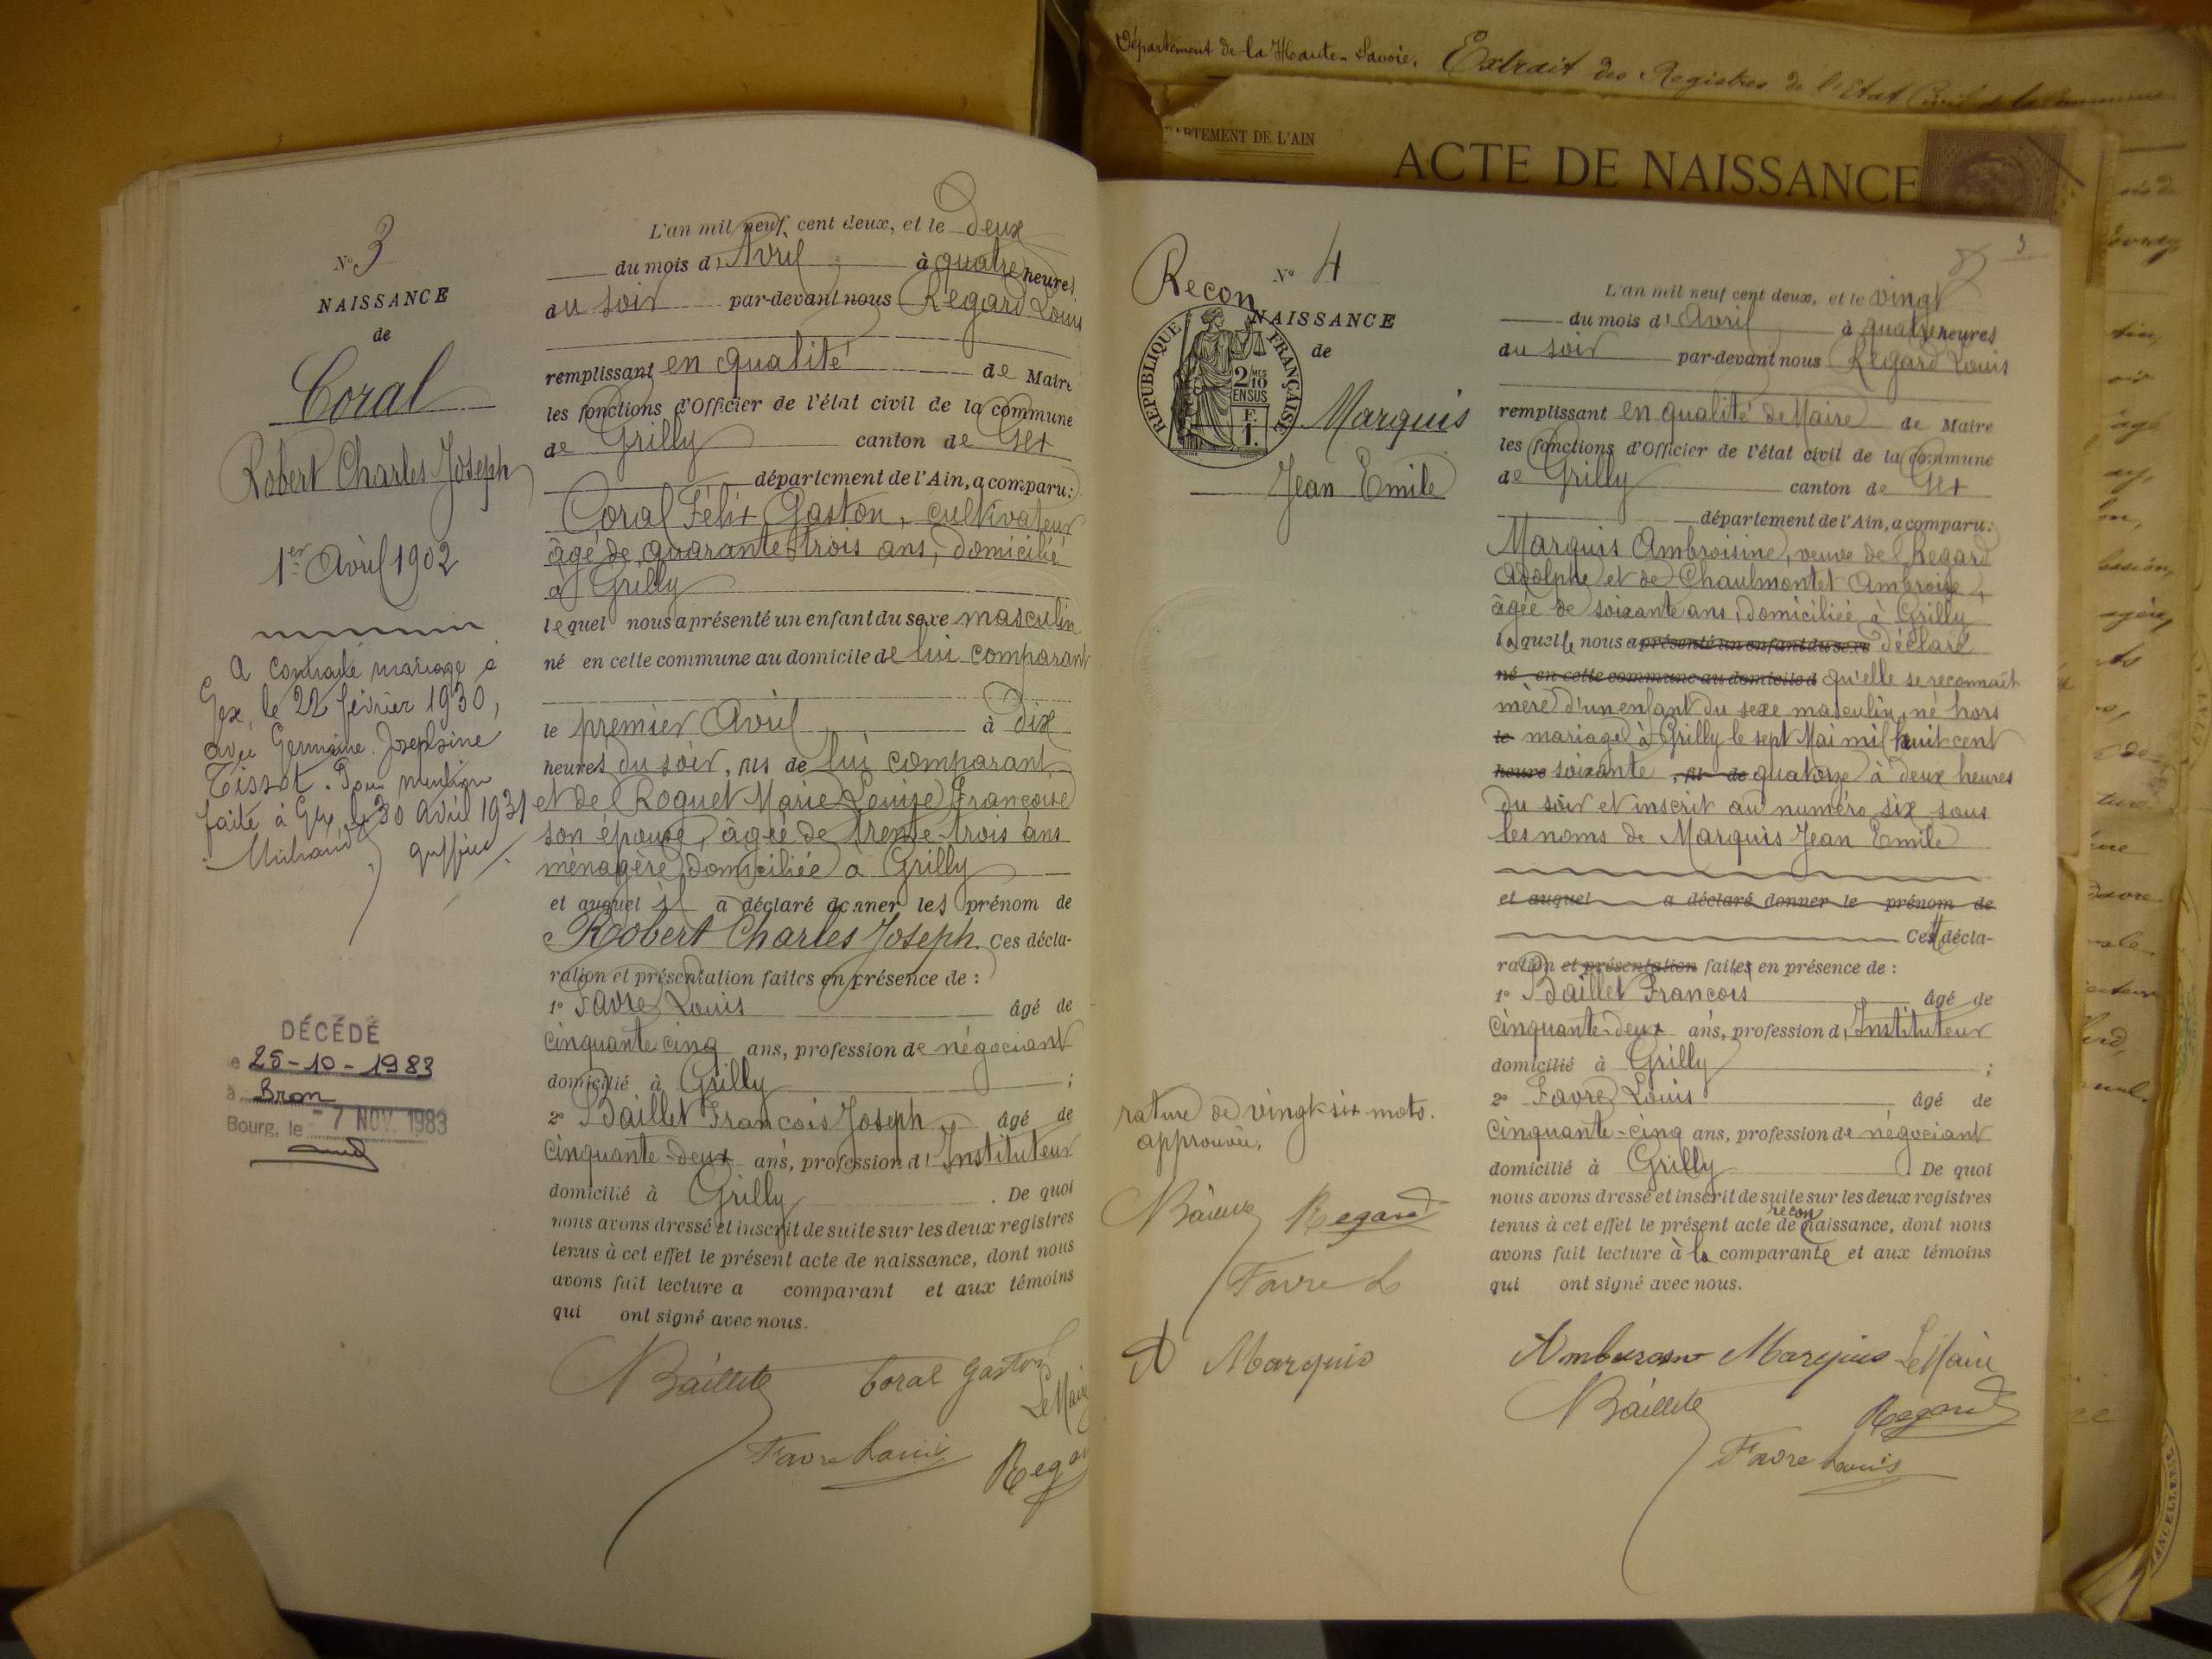 Département de la Haute-Savoie. Extrait des Registres de l'Etat Civil de la Commune
DEPARTEMENT DE L'AIN
ACTE DE NAISSANCE
N° 3
NAISSANCE
de
Coral
Robert Charles Joseph
1er Avril 1902
A contracté mariage à
Gex, le 22 février 1930,
avec Germaine Josephine
Tissot. Pour mention
faite à Gex le 30 avril 1931
DÉCÉDÉ
le 25-10-1983
à Bron
Bourg, le - 7 NOV. 1983
L'an mil neuf cent deux, et le Deux
du mois d'Avril à quatre heures
du soir par-devant nous Regard Louis
remplissant en qualité de Maire
les fonctions d'Officier de l'état civil de la commune
de Grilly canton de Gex
département de l'Ain, a comparu:
Coral Félix Gaston, cultivateur
âgé de quarante trois ans, domicilié
à Grilly
lequel nous a présenté un enfant du sexe masculin
né en cette commune au domicile de lui comparant
le premier Avril à dix
heures du soir, fils de lui comparant
et de Roguet Marie Louise Françoise
son épouse, âgée de trente-trois ans
ménagère, domiciliée à Grilly
et auquel il a déclaré donner les prénom de
Robert Charles Joseph. Ces décla-
ration et présentation faites en présence de :
1° Favre Louis âgé de
cinquante cinq ans, profession de négociant
domicilié à Grilly ;
2° Baillet François Joseph âgé de
cinquante-deux ans, profession d'Instituteur
domicilié à Grilly . De quoi
nous avons dressé et inscrit de suite sur les deux registres
tenus à cet effet le présent acte de naissance, dont nous
avons fait lecture a comparant et aux témoins
qui ont signé avec nous.
Baillet Coral Gaston
Le Maire
Favre Louis Regard
3
Recon
N° 4
NAISSANCE
de
REPUBLIQUE FRANÇAISE
2/10 MES
EN SUS
F.
1.
Marquis
Jean Emile
rature de vingt-six mots.
approuvée,
Baillet Regard
Favre L
A Marquis
L'an mil neuf cent deux, et le vingt
du mois d'Avril à quatre heures
du soir par-devant nous Regard Louis
remplissant en qualité de Maire de Maire
les fonctions d'Officier de l'état civil de la commune
de Grilly canton de Gex
département de l'Ain, a comparu:
Marquis Ambroisine, veuve de Regard
Adolphe et de Chaulmontet Ambroise,
âgée de soixante ans, domiciliée à Grilly
laquelle nous a présenté un enfant du sexe déclaré
né en cette commune au domicile d qu'elle se reconnait
mère d'un enfant du sexe masculin, né hors
le mariage à Grilly le sept Mai mil huit cent
heure soixante, fils de quatorze à deux heures
du soir et inscrit au numéro six sous
les noms de Marquis Jean Emile
et auquel a déclaré donner le prénom de
Cette décla-
ration et présentation faites en présence de :
1° Baillet François âgé de
cinquante-deux ans, profession d'Instituteur
domicilié à Grilly ;
2° Favre Louis âgé de
cinquante-cinq ans, profession de négociant
domicilié à Grilly . De quoi
nous avons dressé et inscrit de suite sur les deux registres
tenus à cet effet le présent acte de reconnaissance, dont nous
avons fait lecture à la comparante et aux témoins
qui ont signé avec nous.
Marquis Le Maire
Baillet Regard
Favre Louis